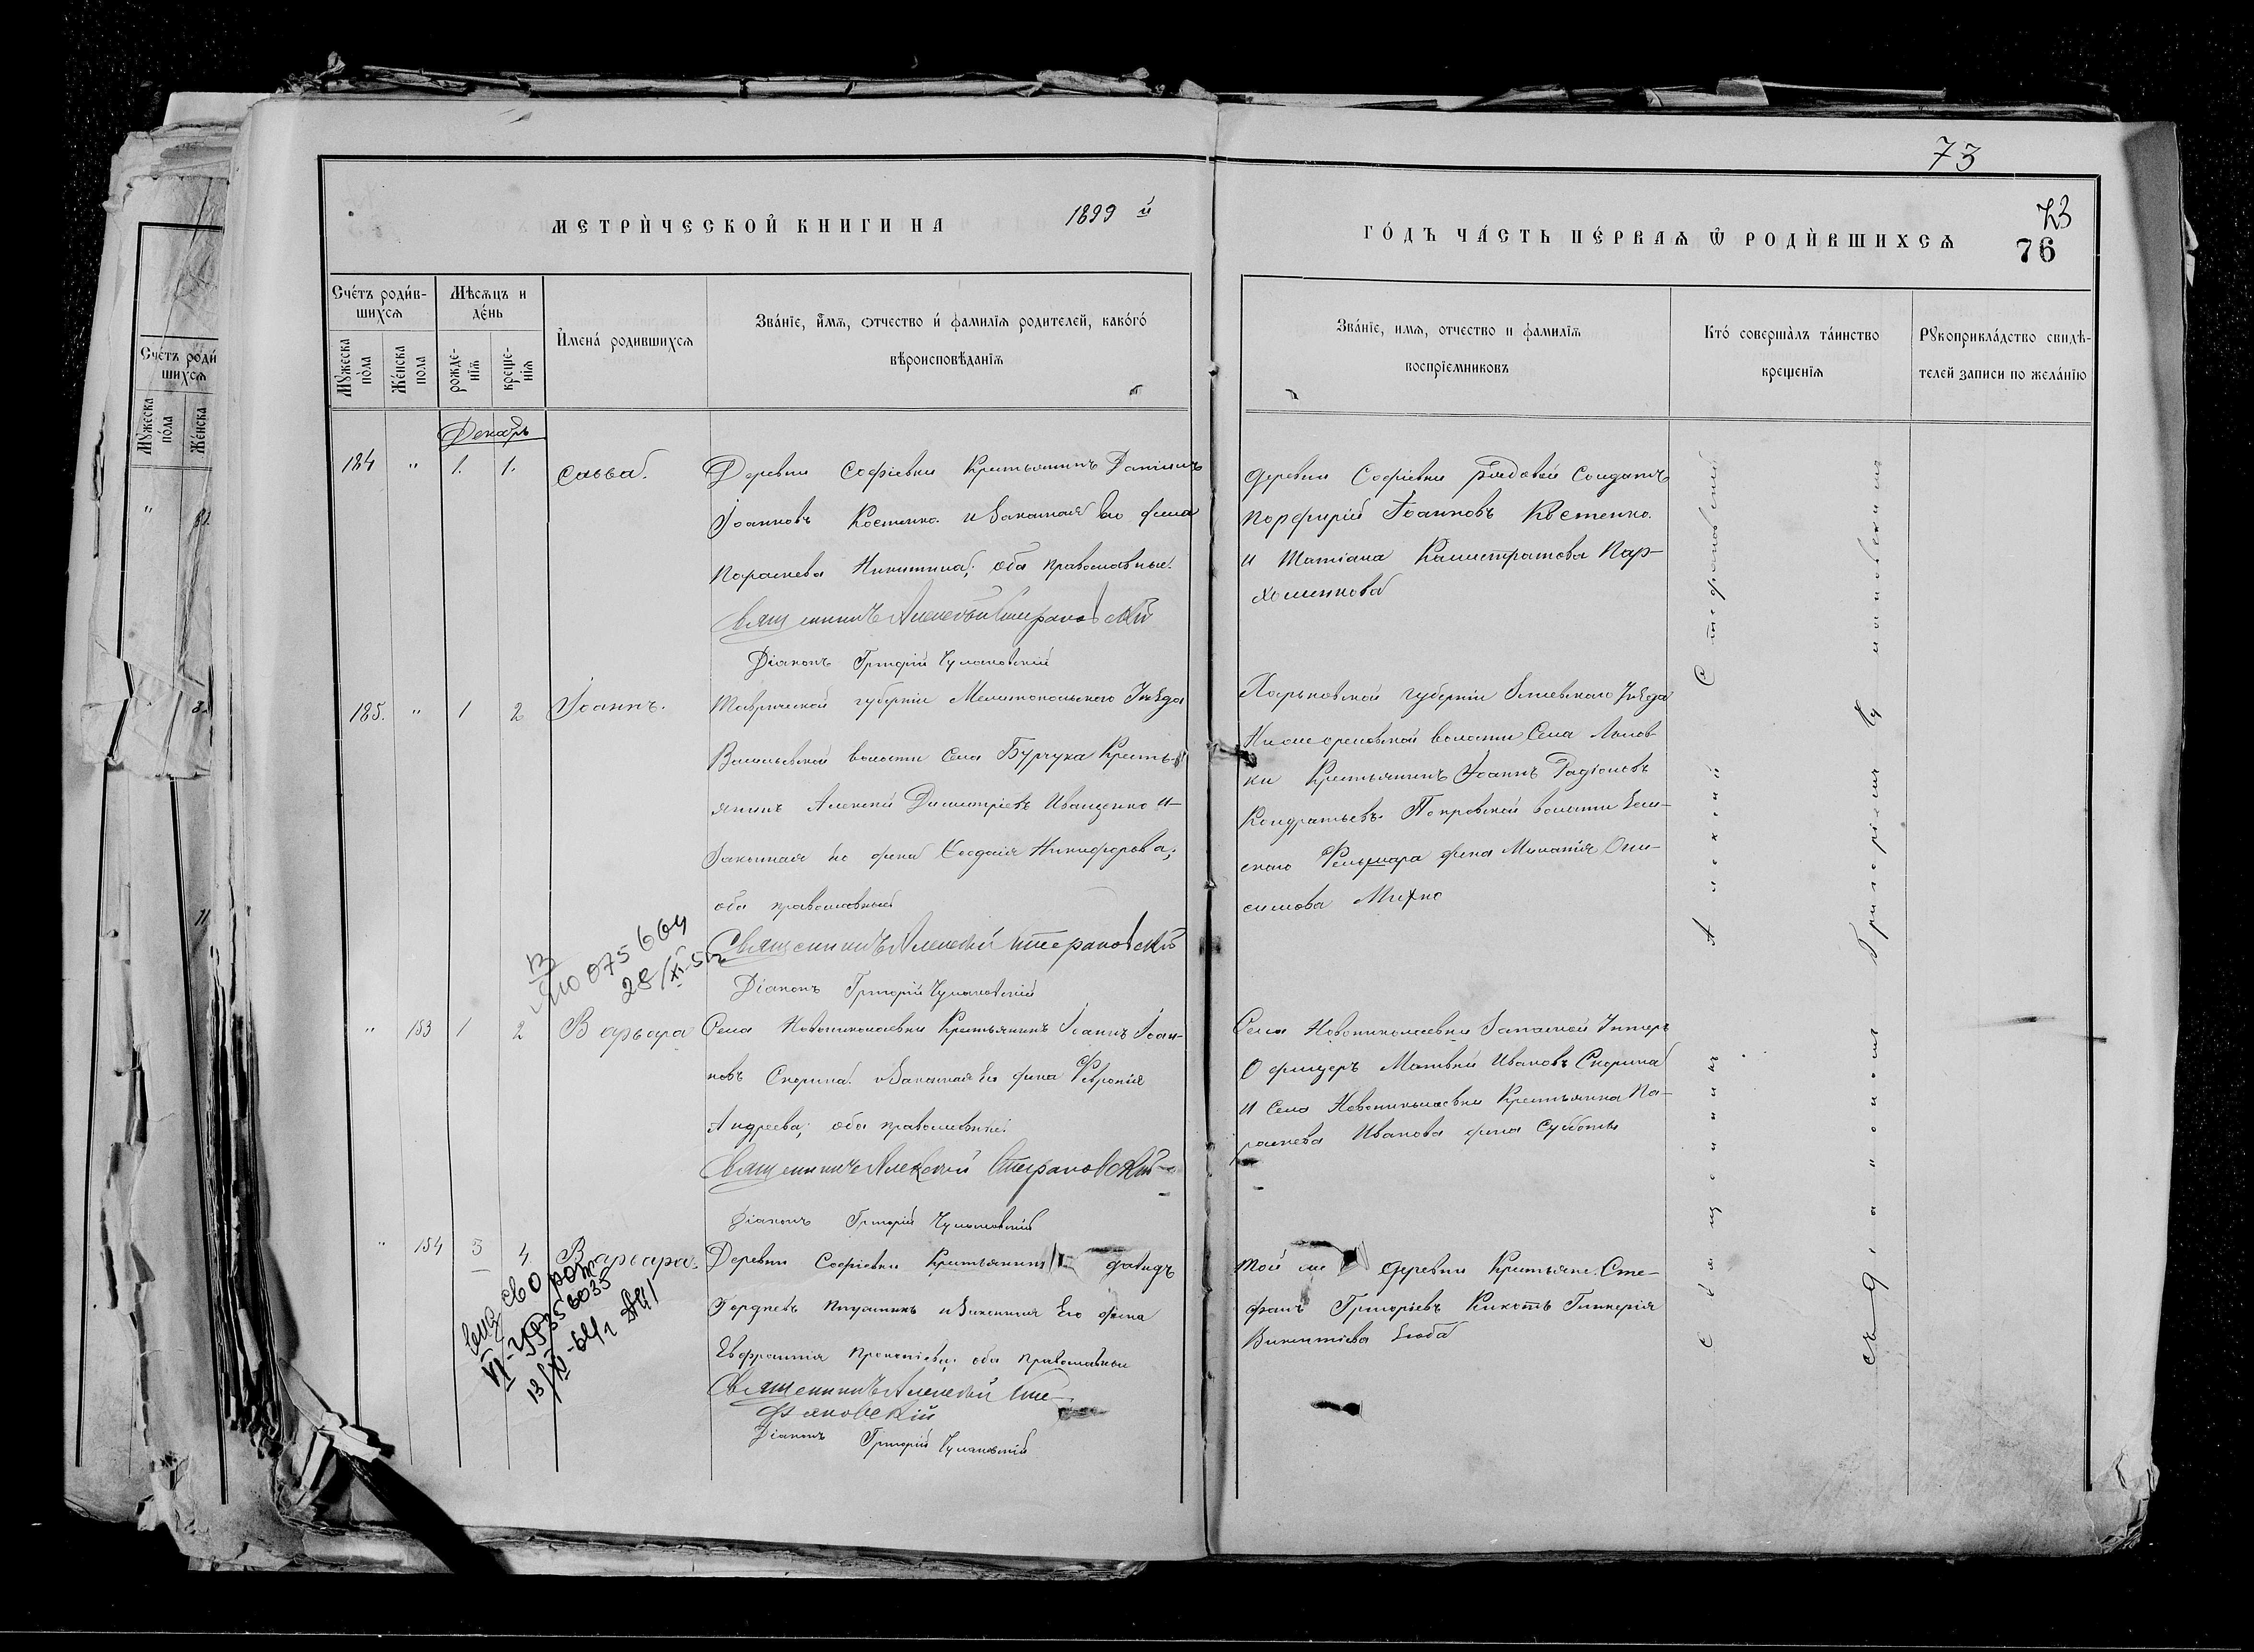 73
73
76
МЕТРИ́ЧЕСКОЙ КНИГИ НА 1899 й
ГО́ДЪ ЧА́СТЬ ПЕ́РВАѦ Ѿ РОДИ́ВШИХСѦ
Сче́тъ роди́в-
шихсѧ
Мꙋ́жеска по́ла
Же́нска пола
Мѣсѧцъ и де́нь
рожде-
нїѧ
креще-
нїѧ
И҆мена́ родившихсѧ
Зва́нїе, и҆́мѧ, ѻтчество и҆ фамилїѧ родителей, како́гѡ
вѣроисповѣданїѧ
Зва́нїе, имѧ, отчество и фамилїѧ
воспрїемниковъ
Кто́ соверша́лъ та́инство
крещенїѧ
Рꙋкоприкла́дство свидѣ-
телей записи по жела́нїю
Декабрь
184 " 1. 1. Савва.
Деревни Софіевки Крестьянинъ Даніилъ
Іоанновъ Костенко и Законная Его жена
Параскева Никитина; оба православные.
Священникъ Алексѣй Стефановскій
Діаконъ Григорій Чумаковскій
деревни Софіевки Рядовой Солдатъ
Порфирій Іоанновъ Костенко.
и Татіана Калистратова Пар-
хоменкова
185. " 1 2 Іоаннъ.
Таврической губерніи Мелитопольскаго Уѣзда
Васильевской волости Села Бурчука Кресть-
янинъ Алексѣй Димитріевъ Иващенко и
Законная его жена Ѳеодосія Никифорова;
оба православные
Священникъ Алексѣй Стефановскій
Діаконъ Григорій Чумаковскій
Харьковской губерніи Зміевскаго Уѣзда
волости Села
ки Крестьянинъ Іоаннъ Радіоновъ
Кондратьевъ. Покровской волости Зем-
скаго Фельшара жена Меланія Они-
симова Михно
075664
28/XI-5
" 153 1 2 Варвара
Села Новониколаевки Крестьянинъ Іоаннъ Іоан-
новъ Скорина и Законная Его жена Февронія
Андреева; оба православные
Священникъ Алексѣй Стефановскій
Діаконъ Григорій Чумаковскій
Села Новониколаевки Запасной Унтеръ
Офицеръ Матвѣй Ивановъ Скорина
и Села Новониколаевки Крестьянка Па-
раскева Иванова жена Субботы
" 154 3 4 Варвара.
Деревни Софіевки Крестьянинъ Давидъ
Гордѣевъ и Законная Его жена
Евфросинія Прокопіева; оба православные
Священникъ Алексѣй Сте-
фановскій
Діаконъ Григорій Чумаковскій
Той же деревни Крестьяне: Сте-
фанъ Григорьевъ Кикоть Гликерія
Викентіева
Священникъ Алексѣй Стефановскій
съ діакономъ Григоріемъ Чумаковскимъ
Сче́тъ роди́
шихсѧ
Мꙋ́жеска по́ла
Же́нска